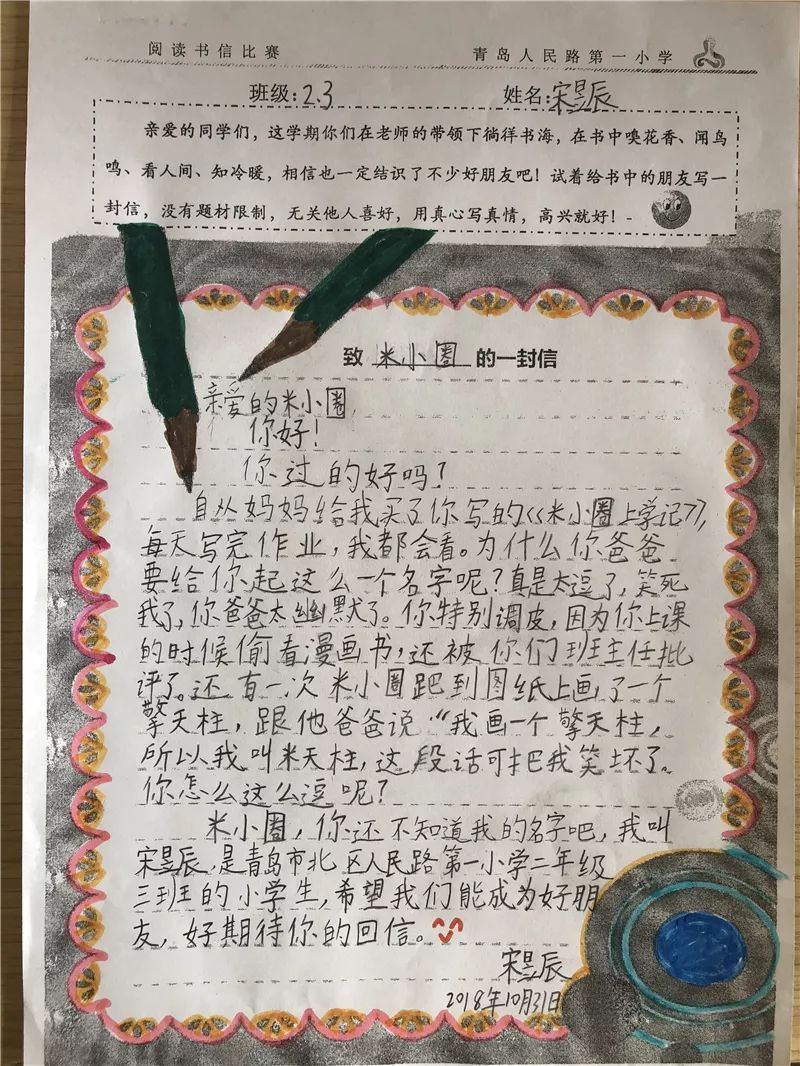 阅读书信比赛 青岛人民路第一小学
班级:2.3 姓名:宋昱辰
亲爱的同学们，这学期你们在老师的带领下徜徉书海，在书中嗅花香、闻鸟
鸣、看人间、知冷暖，相信也一定结识了不少好朋友吧！试着给书中的朋友写一
封信，没有题材限制，无关他人喜好，用真心写真情，高兴就好！-
致 米小圈 的一封信
亲爱的米小圈
你好！
你过的好吗？
自从妈妈给我买了你写的《米小圈上学记》，
每天写完作业，我都会看。为什么你爸爸
要给你起这么一个名字呢？真是太逗了，笑死
我了，你爸爸太幽默了。你特别调皮，因为你上课
的时候偷看漫画书，还被你们班主任批
评了。还有一次米小圈跑到图纸上画了一个
擎天柱，跟他爸爸说“我画一个擎天柱，
所以我叫米天柱，这段话可把我笑坏了。
你怎么这么逗呢？
米小圈，你还不知道我的名字吧，我叫
宋昱辰，是青岛市北区人民路第一小学二年级
三班的小学生，希望我们能成为好朋
友，好期待你的回信。
宋昱辰
2018年10月31日